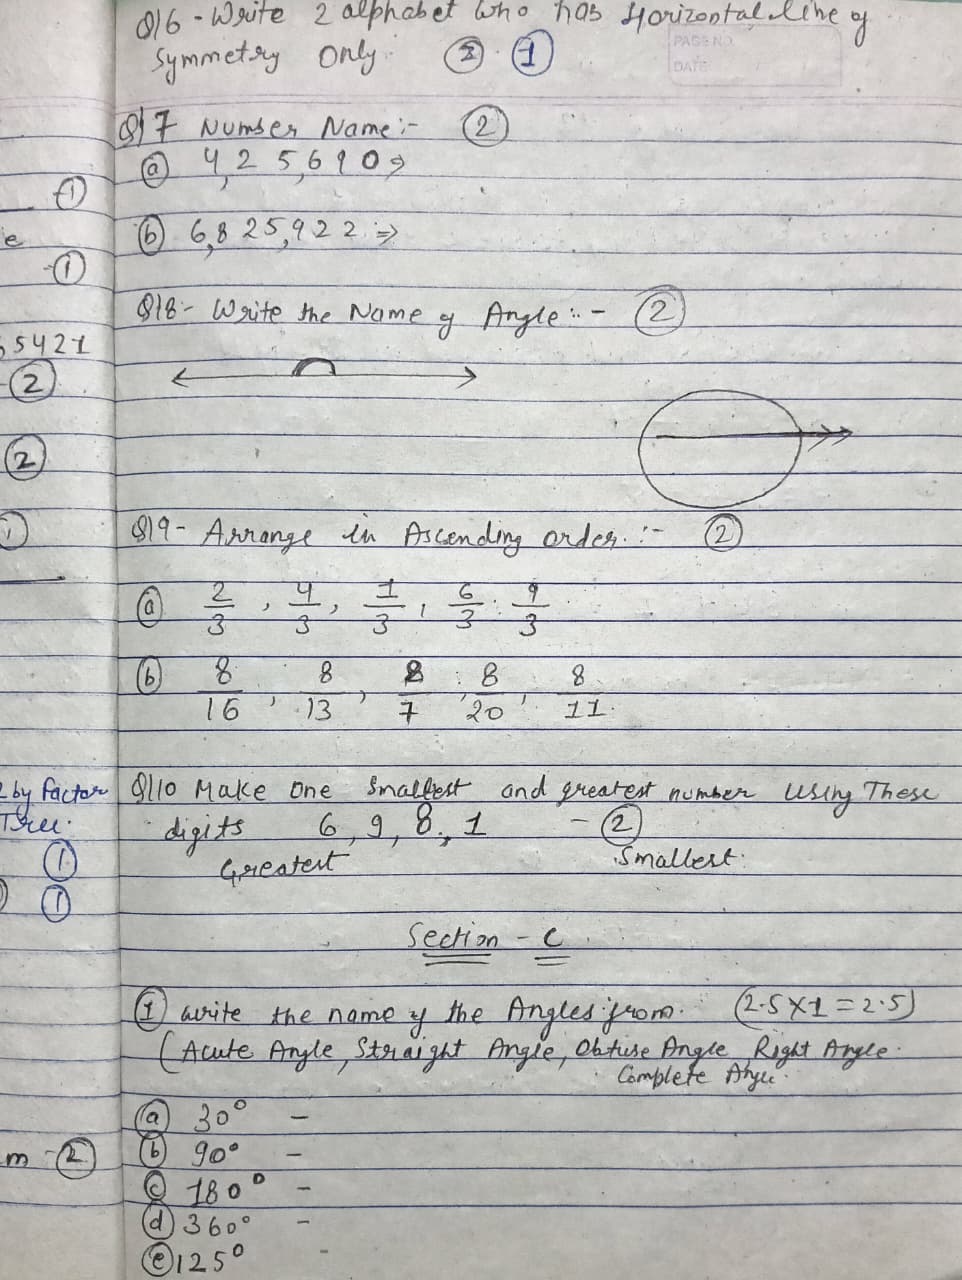 Q/6 - Write 2 alphabet who has Horizontal line of
Symmetry Only. 2 1
PAGE NO.
DATE
Q/7 Number Name:- 2
a 4,25,610 ⇒
1
b 6,825,922 ⇒
e
1
Q/8:- Write the Name of Angle:- 2
5421
2
2
Q/9- Arrange in Ascending order:- 2
1
a 2/3, 4/3, 1/3, 6/3, 9/3
b 8/16, 8/13, 8/7, 8/20, 8/11
by factor
Tree.
Q/10 Make One Smallest and greatest number Using These
digits 6, 9, 8, 1 - 2
1
Greatest Smallest.
1
Section - C
1 write the name of the Angles from. (2.5X1=2.5)
(Acute Angle, Straight Angle, Obtuse Angle, Right Angle.
Complete Angle.
a 30° -
b 90° -
m - 2
c 180° -
d 360° -
e 125° -